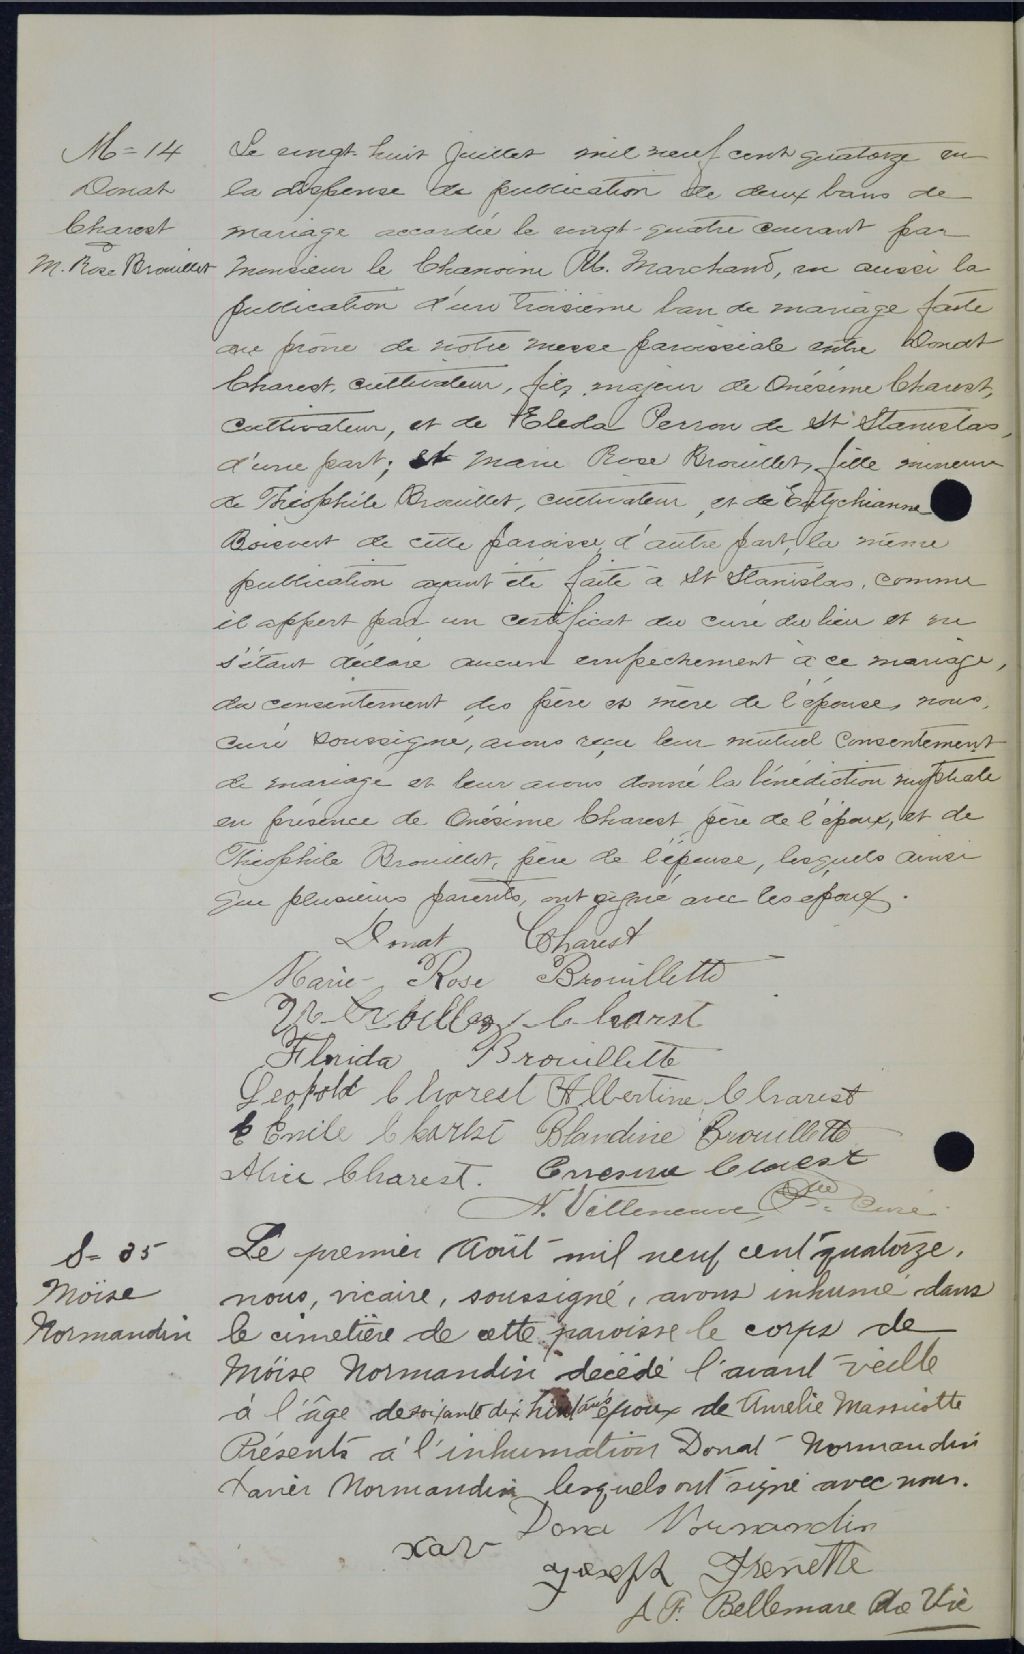 M = 14
Donat
Charest
&
M. Rose Brouillet
Le vingt-huit juillet mil neuf cent quatorze vu
la dispense de publication de deux bans de
mariage accordée le vingt-quatre courant par
Monsieur le Chanoine Ub. Marchand, vu aussi la
publication d'un troisième ban de mariage faite
au prône de notre messe paroissiale entre Donat
Charest, cultivateur, fils majeur de Onésime Charest,
cultivateur, et de Eleda Perron de St Stanislas,
d'une part; et Marie Rose Brouillet, fille mineure
de Théophile Brouillet, cultivateur, et de Eutychianne
Boisvert de cette paroisse, d'autre part, la même
publication ayant été faite à St Stanislas, comme
il appert par un certificat du curé du lieu et ne
s'étant déclaré aucun empêchement à ce mariage,
du consentement des père et mère de l'épouse, nous,
curé soussigné, avons reçu leur mutuel consentement
de mariage et leur avons donné la bénédiction nuptiale
en présence de Onésime Charest, père de l'époux, et de
Théophile Brouillet, père de l'épouse, lesquels ainsi
que plusieurs parents, ont signé avec les époux.
Donat Charest
Marie-Rose Brouillette
Charest
Florida Brouillette
Leopold Charest Albertine Charest
Emile Charest Blandine Brouillette
Alice Charest. Charest
N. Villeneuve, Ptre Curé
S = 35
Moïse
Normandin
Le premier Août mil neuf cent quatorze,
nous, vicaire, soussigné, avons inhumé dans
le cimetière de cette paroisse le corps de
Moïse Normandin décédé l'avant-veille
à l'âge de soixante dix huit ans époux de Aurelie Massicotte
Présents à l'inhumation Donat Normandin
Xavier Normandin lesquels ont signé avec nous.
Dona Normandin
xav
Joseph Frenette
A F. Bellemare Ptre Vic